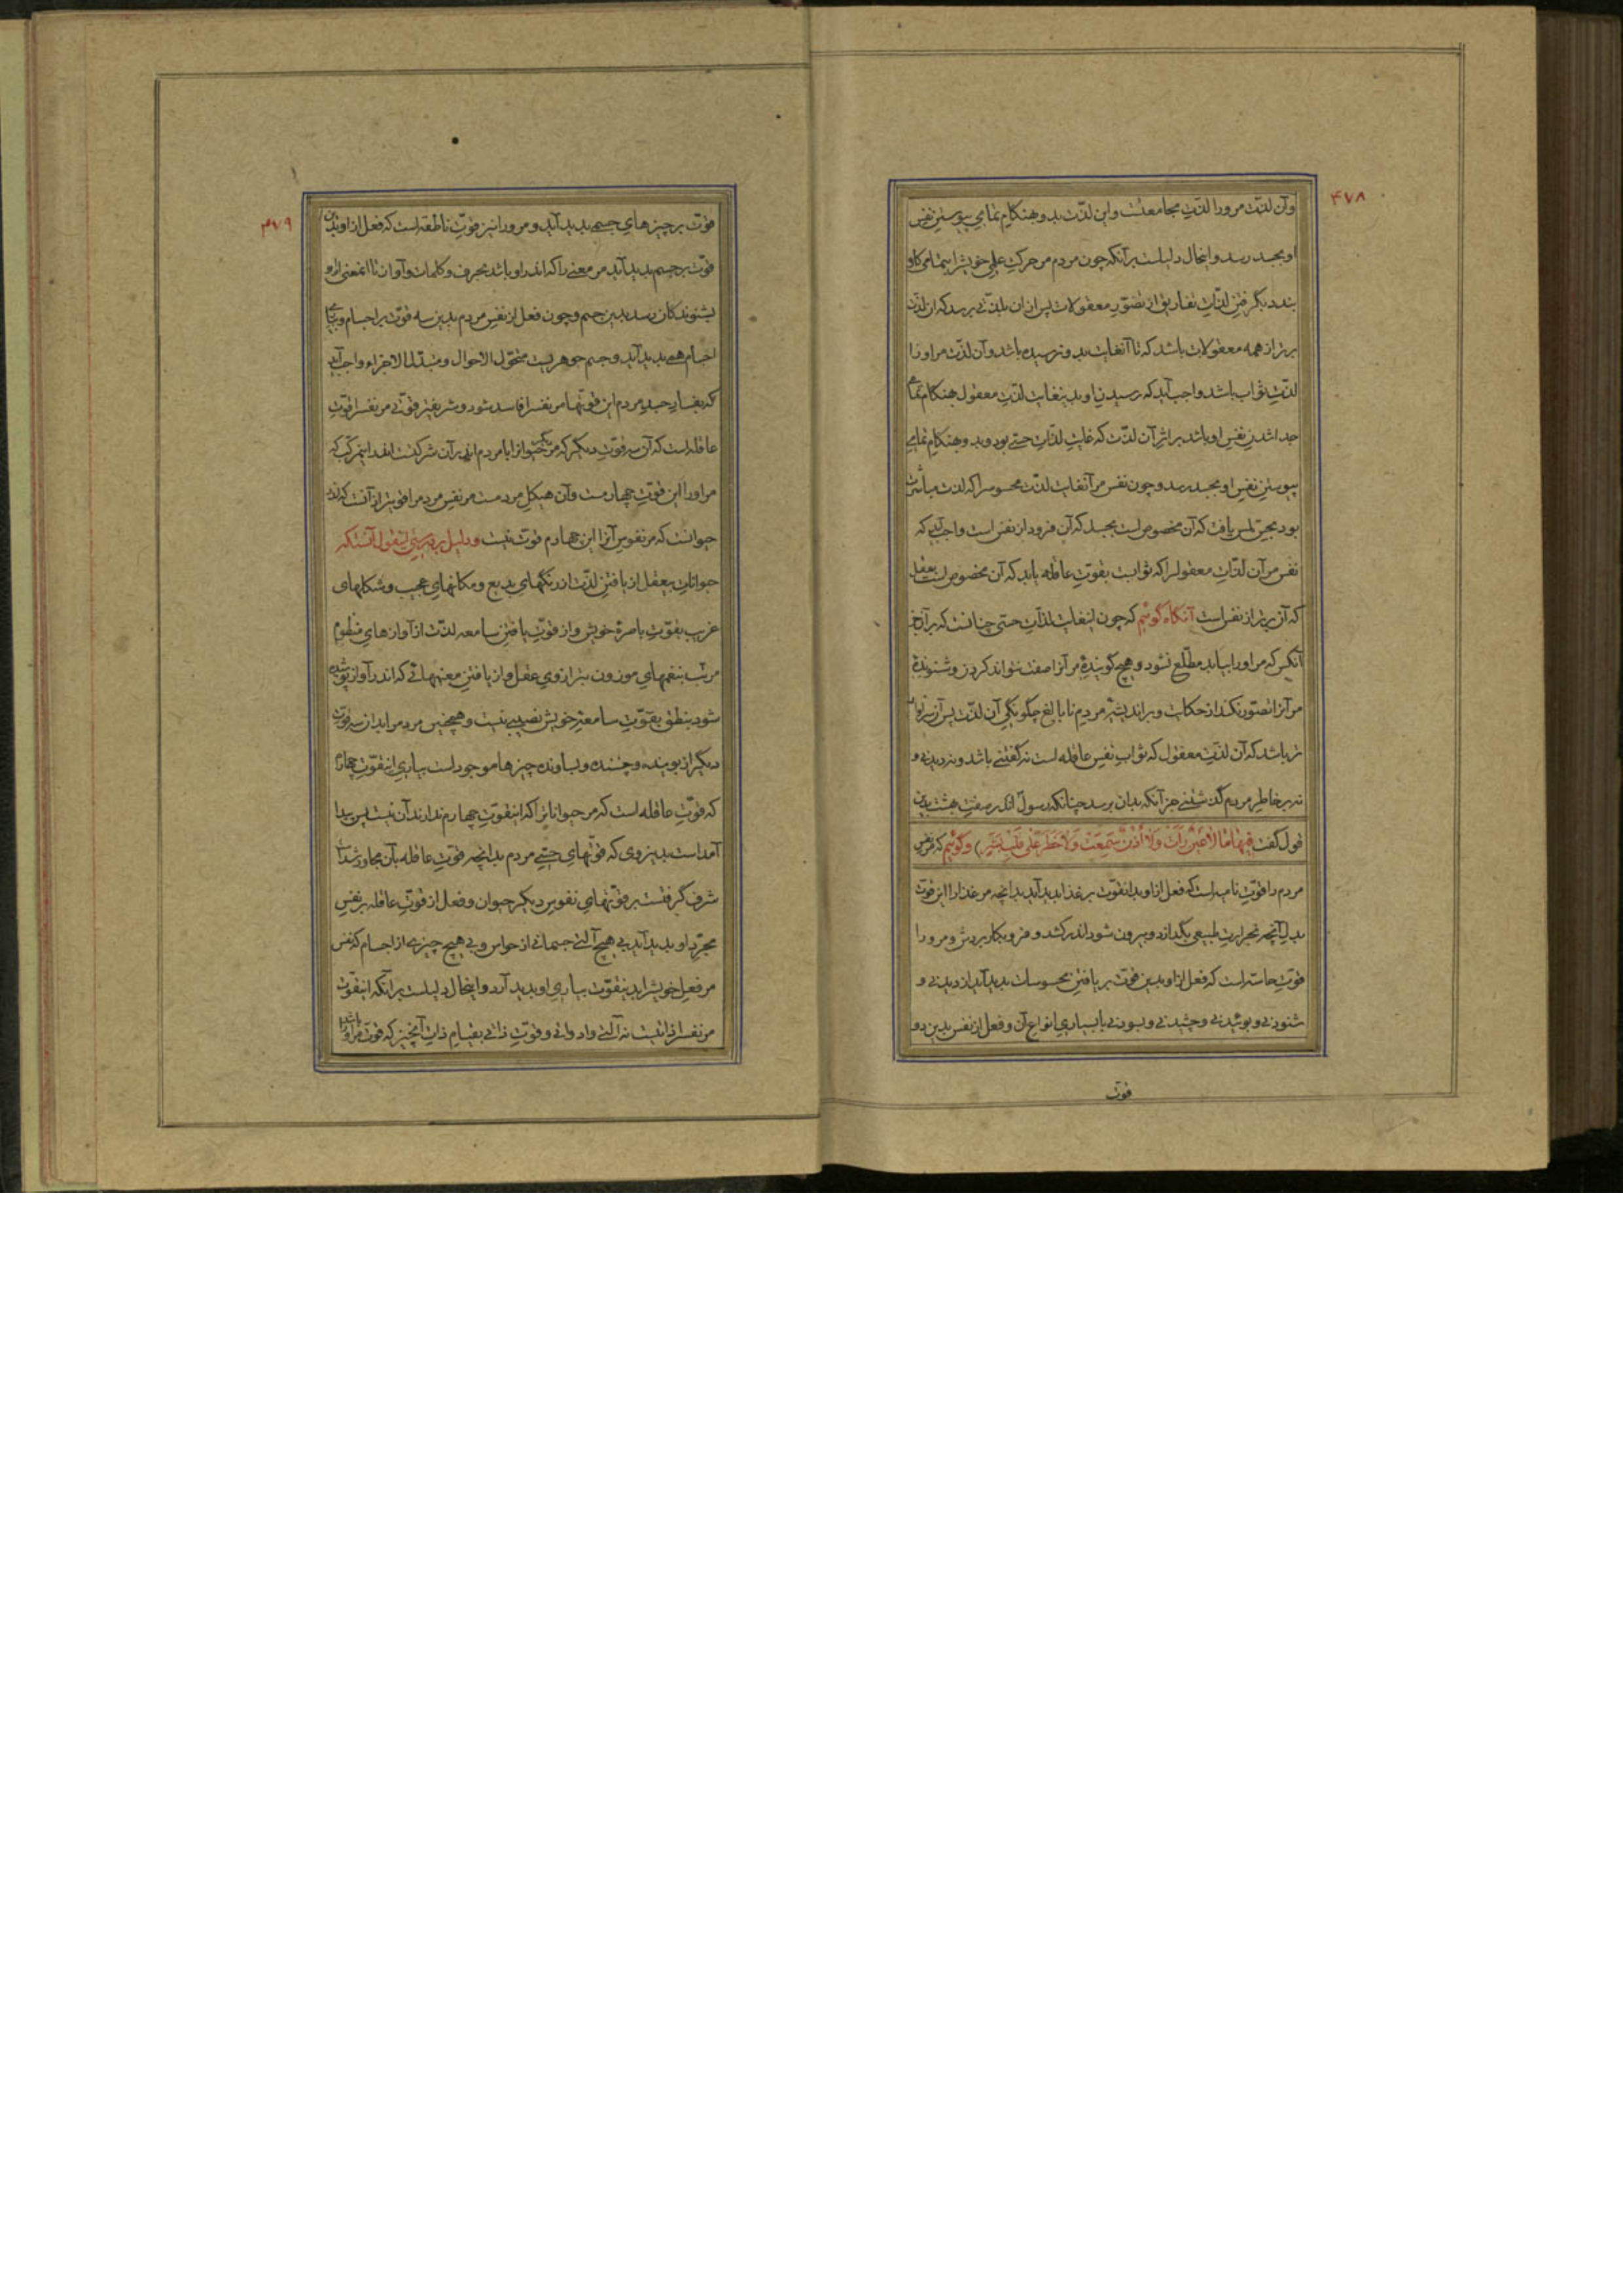 ۴۷۸
وآن لذّت مرورا لذّتِ مجامعتست واین لذّت بدو هنکامِ تمامیِ پیوستنِ نفسِ
او بجسد رسد واینحال دلیلست برآنکه چون مردم مر حرکتِ علمیِ خویشرا بتمامی کار
بندد دیگر فتنِ لذّاتِ تفاریق از تصوّرِ معقولات پس ازان بلذّتی برسد که ان لذّت
برتر از همه معقولات باشد که تا آنغایت بدو نرسیده باشد وآن لذّت مراورا
لذّتِ ثواب باشد واجب آید که رسیدنِ او بدینغایت لذّتِ معقول هنکام تمامی
جدا شدنِ نفسِ او باشد بر اثرِ آن لذّت که غایتِ لذّاتِ حسّی بود وبدو هنکامِ تمامیِ
پیوستنِ نفسِ او بجسد رسد و چون نفس مر آنغایت لذّت محسوسرا که لذت مباشرت
بود بحسِّ لمس یافت که آن مخصوص است بجسد که آن فرود از نفس است واجب آید که
نفس مر آن لذّاتِ معقولرا که ثوابست بقوّتِ عاقله یابد که آن مخصوص است بعقل
که آن برتر از نفس است آنکاه گوئیم که چون اینغایت لذّاتِ حسّی چنانست که بر آن جز
آنکس که مراورا بیابد مطّلع نشود و هیچ گویندهٔ مر آنرا صفت نتواند کردن و شنوندهٔ
مر آنرا تصوّر نکند از حکایت و براندیشهٔ مردمِ نابالغ چگونگیِ آن لذّت پس آن سزاوار
تر باشد که آن لذّتِ معقول که ثوابِ نفسِ عاقله است نه گفتنی باشد و نه دیدنی و
نه بر خاطرِ مردم گذشتنی جز آنکه بدان برسد چنانکه رسول اندر صفتِ بهشت بدین
قول گفت فِیهَا مَا لَا عَیْنٌ رَأَتْ وَلَا أُذُنٌ سَمِعَتْ وَلَا خَطَرَ عَلَى قَلْبِ بَشَرٍ) وگوئیم که مر نفسِ
مردم را قوّتِ نامیه است که فعل ازاو بدانقوّت بر غذا پدید آید بدانچه مر غذا را این قوّت
بدلِ آنچه بحرارتِ طبیعی بگدازد و بیرون شود اندر کشد و فزو بکار بردش ومرورا
قوّتِ حاسّه است که فعل ازاو بدین قوّت بر یافتنِ محسوسات پدید آید از دیدنی و
شنودنی و بوئیدنی و چشیدنی و بسودنی با بسیاریِ انواعِ آن و فعل از نفس بدین دو
قوّت
۴۷۹
قوّت بر چیزهایِ جسمی پدید آید و مرورا نیز قوّتِ ناطقه است که فعل ازاو بدین
قوّت بر جسم پدید آید مر معنی را که اندر او باشد بحرف و کلمات و آواز تا آنمعنی ازو
بشنوندکان رسد بدین جسم و چون فعل از نفسِ مردم بدین سه قوّت بر اجسام و بمیانجیِ
اجسام همی پدید آید و جسم جوهریست متحوّل الاحوال و متبدّل الاجزاء واجب آید
که بفسادِ جسدِ مردم این قوّتها مر نفسرا فاسد شود و شریفتر قوّتی مر نفسرا قوّتِ
عاقله است که آن سه قوّتِ دیگر که مر حیوانرا با مردم اندر آن شرکتست
مراورا این قوّتِ چهارمست وآن هیکلِ مردمست مر نفسِ مردم را قویتر از آنست که اندر
حیوانست که مر نفوسِ آنرا این چهارم قوّت نیست ودلیل بر درستیِ اینقول آنستکه
حیواناتِ بیعقل از یافتنِ لذّت از رنگهایِ بدیع ومکانهایِ عجیب و شکلهایِ
غریب بقوّتِ باصرهٔ خویش و از قوّتِ یافتنِ سامعه لذّت از آوازهایِ منظومِ
مرتّب بنغمهایِ موزون بترازویِ عقل و از یافتنِ معنیهائی که اندر آواز پوشیده
شود بنطق بقوّتِ سامعهٔ خویش نصیبی نیست و همچنین مردم را بدان سه قوّتِ
دیگر از بوینده و چشنده و بساونده چیزها موجود است بیاریِ اینقوّتِ چهارم
که قوّتِ عاقله است که مر حیواناترا که اینقوّتِ چهارم ندارند آن نیست پس پیدا
آمداست بدینروی که قوّتهایِ حسّیِ مردم بدانچه قوّتِ عاقله بآن مجاور شداست
شرف گرفتست بر قوّتهایِ نفوسِ دیگر حیوان و فعل از قوّتِ عاقله بر نفسِ
مجرّدِ او پدید آید بی هیچ آلتی جسمانی از حواس و بی هیچ چیزی از اجسام که نفس
مر فعلِ خویشرا بدینقوّت بیاریِ او پدید آرد و اینحال دلیلست برآنکه اینقوّت
مر نفسرا ذاتیست نه آلتی و ادواتی و قوّتِ ذاتی بقیامِ ذاتِ آنچیز که قوّت مراورا باشد